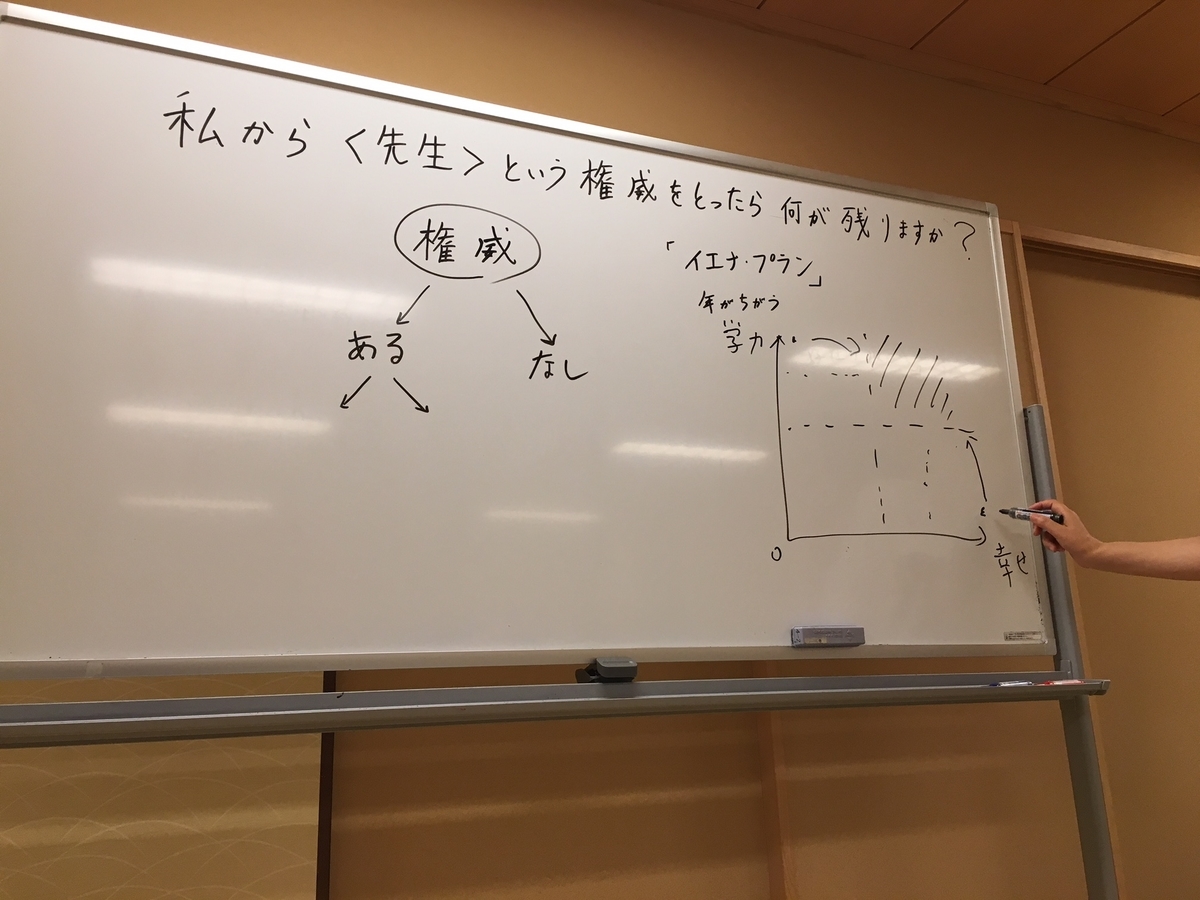 私から<先生>という権威をとったら何が残りますか?
権威
ある
なし
「イエナ・プラン」
年がちがう
学力
0
幸せ